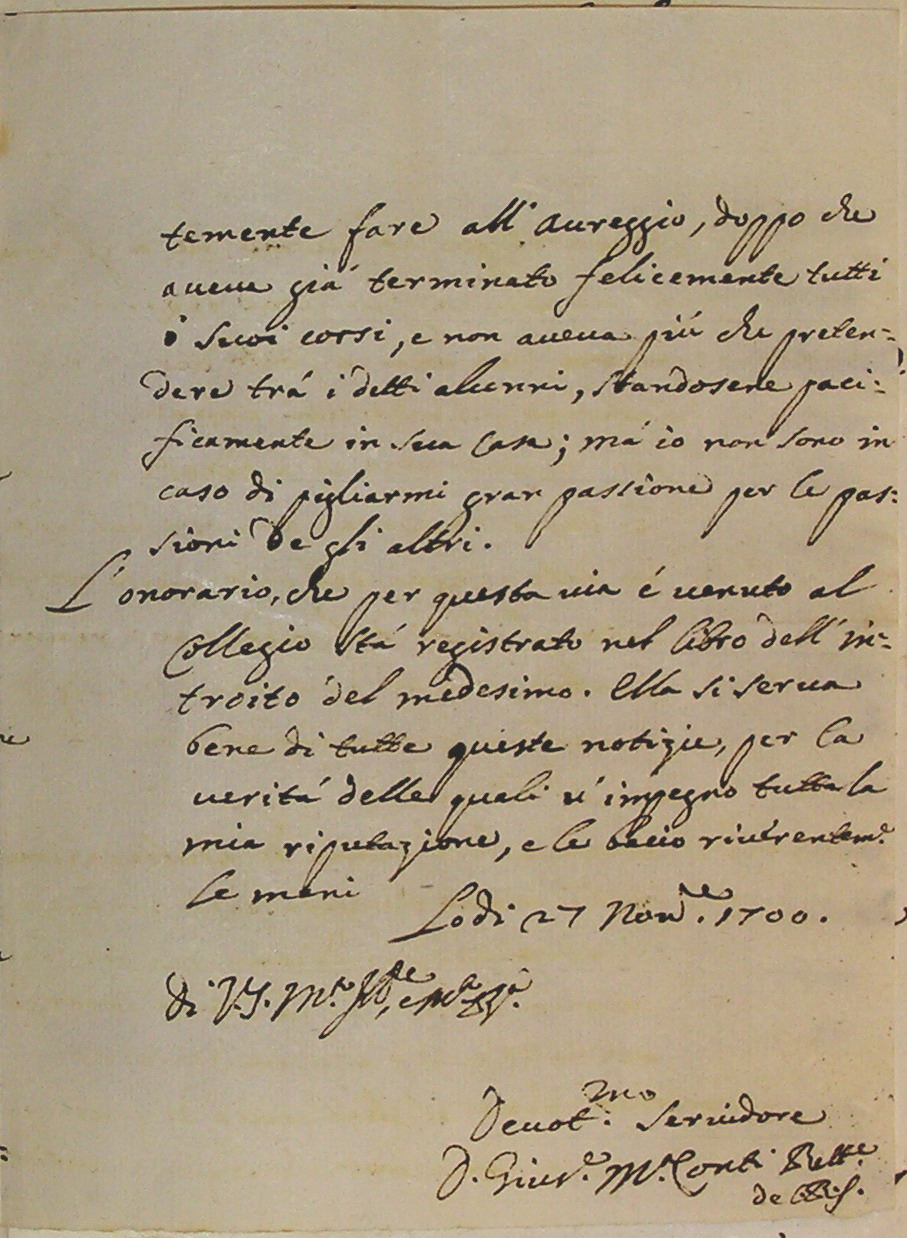 temente fare all' Aureggio, doppo che
aveva già terminato felicemente tutti
i suoi corsi, e non aveva più che preten-
dere trà i detti alunni, standosene paci-
ficamente in sua Casa; mà io non sono in
caso di pigliarmi gran passione per le pas-
sioni de gli altri.
L'onorario, che per questa via é venuto al
Collegio stà registrato nel libro dell' in-
troito del medesimo. Ella si serva
bene di tutte queste notizie, per la
verità delle quali v' impegno tutta la
mia riputazione, e le bacio riverentem.e
le mani
Lodi 27 Nov.re 1700.
di V.S. M.to
Devot.mo Servidore
D. Gius.e M.a Conti Rett.e